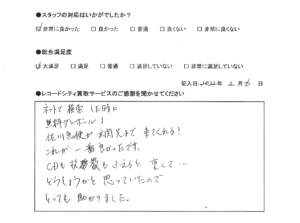 ●スタッフの対応はいかがでしたか？
☑非常に良かった □良かった □普通 □良くない □非常に良くない
●総合満足度
☑大満足 □満足 □普通 □満足していない □非常に満足していない
記入日:2022年2月6日
●レコードシティ買取サービスのご感想を聞かせてください
ネットで検索した時に
無料ダンボール!
佐川急便が玄関先まで来てくれる!
これが一番良かったです。
CDも枚数もふえると重くて…
どうしようかと思っていたので
とっても助かりました。